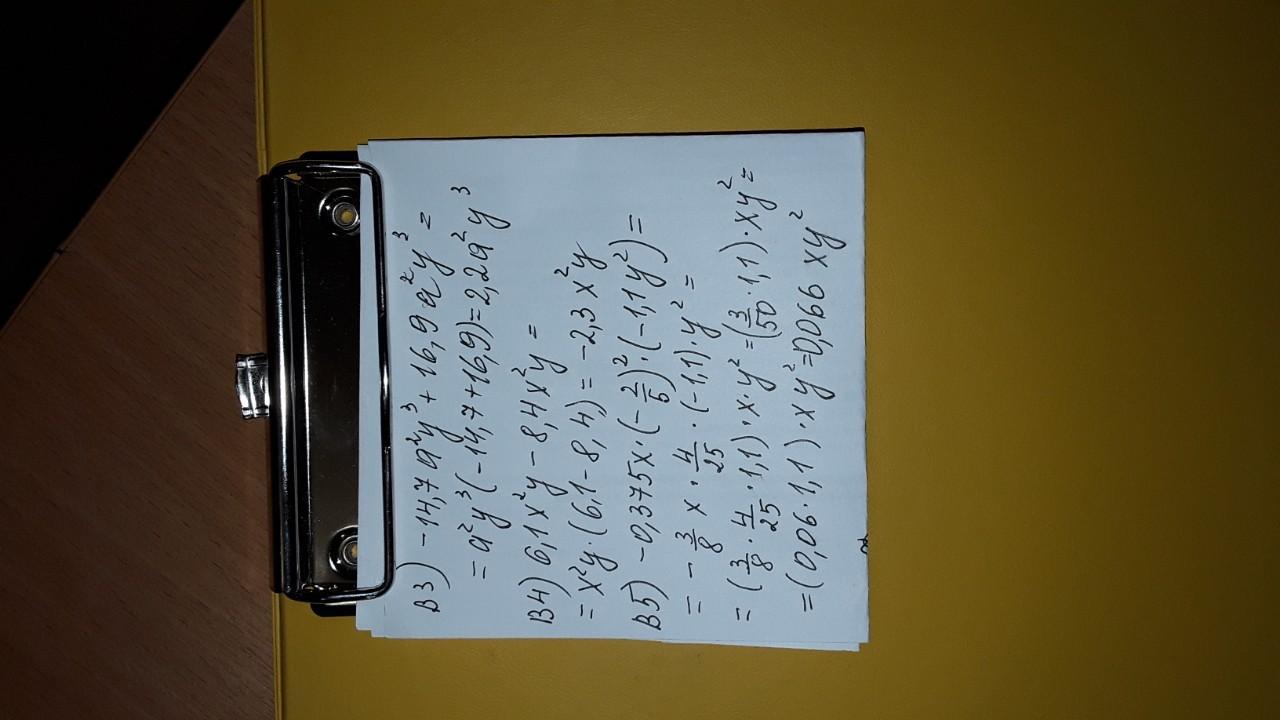 В3) -14,7a²y³ + 16,9a²y³ =
= a²y³(-14,7+16,9)=2,2a²y³
В4) 6,1x²y - 8,4x²y =
= x²y·(6,1-8,4)= -2,3x²y
В5) -0,375x·(-2/5)²·(-1,1y²)=
= -3/8 x · 4/25 · (-1,1)·y² =
= (3/8 · 4/25 · 1,1)·x·y² =(3/50 · 1,1)·xy² =
=(0,06·1,1)·xy²=0,066xy²